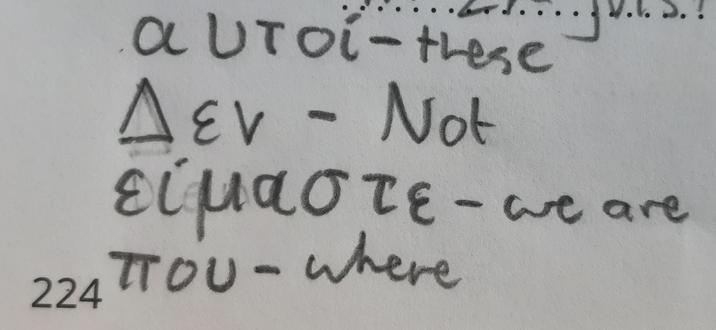 αυτοί - these
Δεν - Not
είμαστε - we are
που - where
224